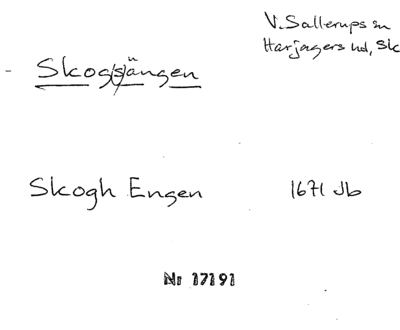 V. Sallerups sn
Harjagers hd, Sk
Skog(s)ängen
Skogh Engen 1671 Jb
Nr 17191